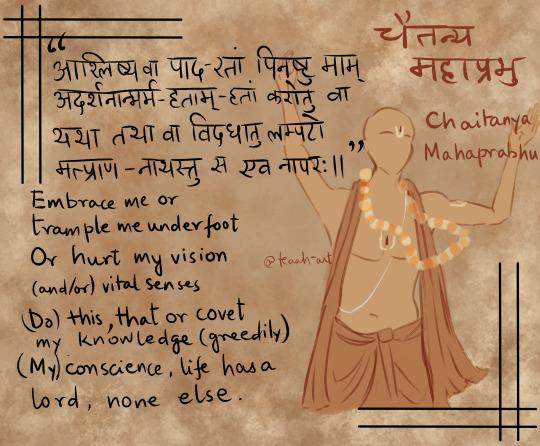 “
आश्लिष्य वा पाद-रतां पिनष्टु माम्
अदर्शनान्मर्म-हताम्-हतां करोतु वा
यथा तथा वा विदधातु लम्पटो
मत्प्राण-नाथस्तु स एव नापरः।। ”
चैतन्य
महाप्रभु
Chaitanya
Mahaprabhu
Embrace me or
trample me underfoot
Or hurt my vision
(and/or) vital senses
(Do) this, that or covet
my knowledge (greedily)
(My) conscience, life has a
lord, none else.
@teaah-art